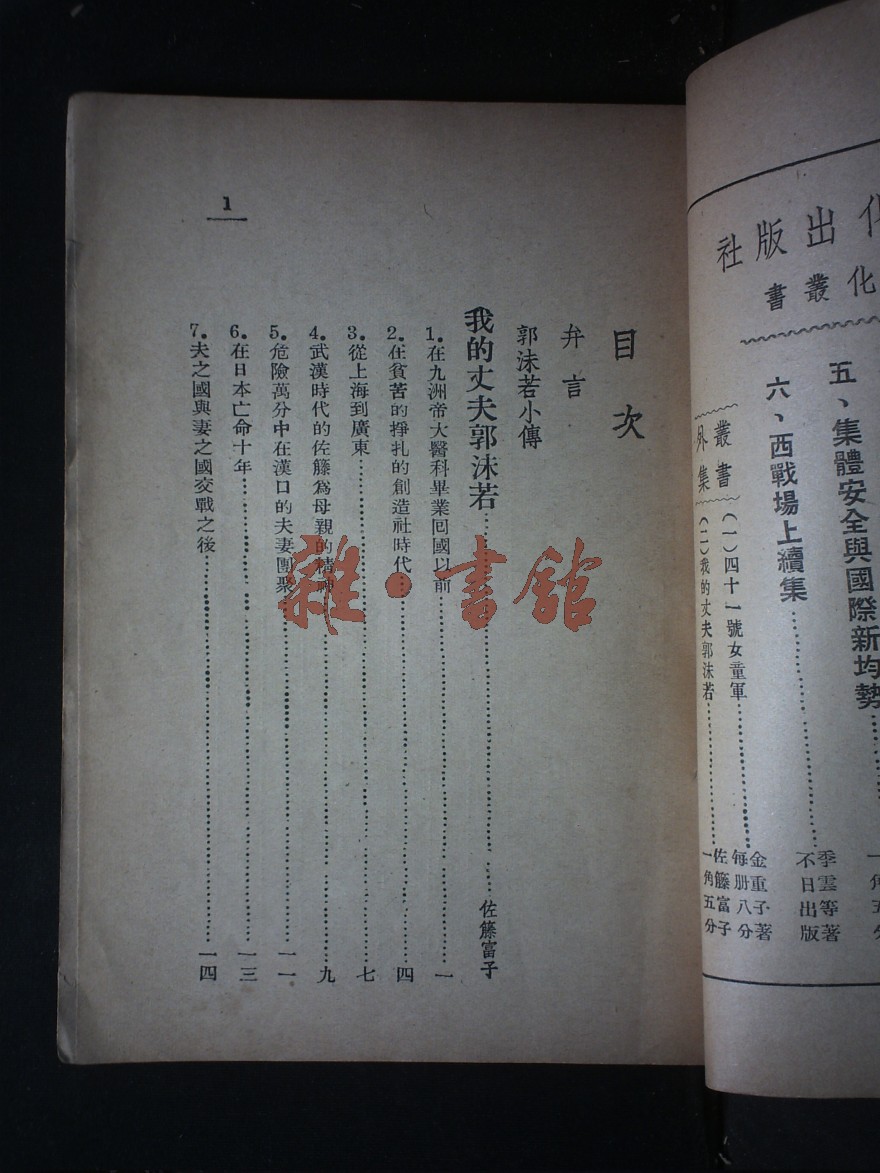 出版社
化叢書
五、集體安全與國際新均勢
一角五分
六、西戰場上續集
季雲等著
不日出版
叢書外集
(一)四十一號女童軍
金重子著
每册八分
(二)我的丈夫郭沫若
佐籐富子
一角五分
目次
弁言
郭沫若小傳
我的丈夫郭沫若 佐籐富子
1.在九洲帝大醫科畢業囘國以前 一
2.在貧苦的掙扎的創造社時代 四
3.從上海到廣東 七
4.武漢時代的佐籐爲母親的精神 九
5.危險萬分中在漢口的夫妻團聚 一一
6.在日本亡命十年 一三
7.夫之國與妻之國交戰之後 一四
1
雜·書館